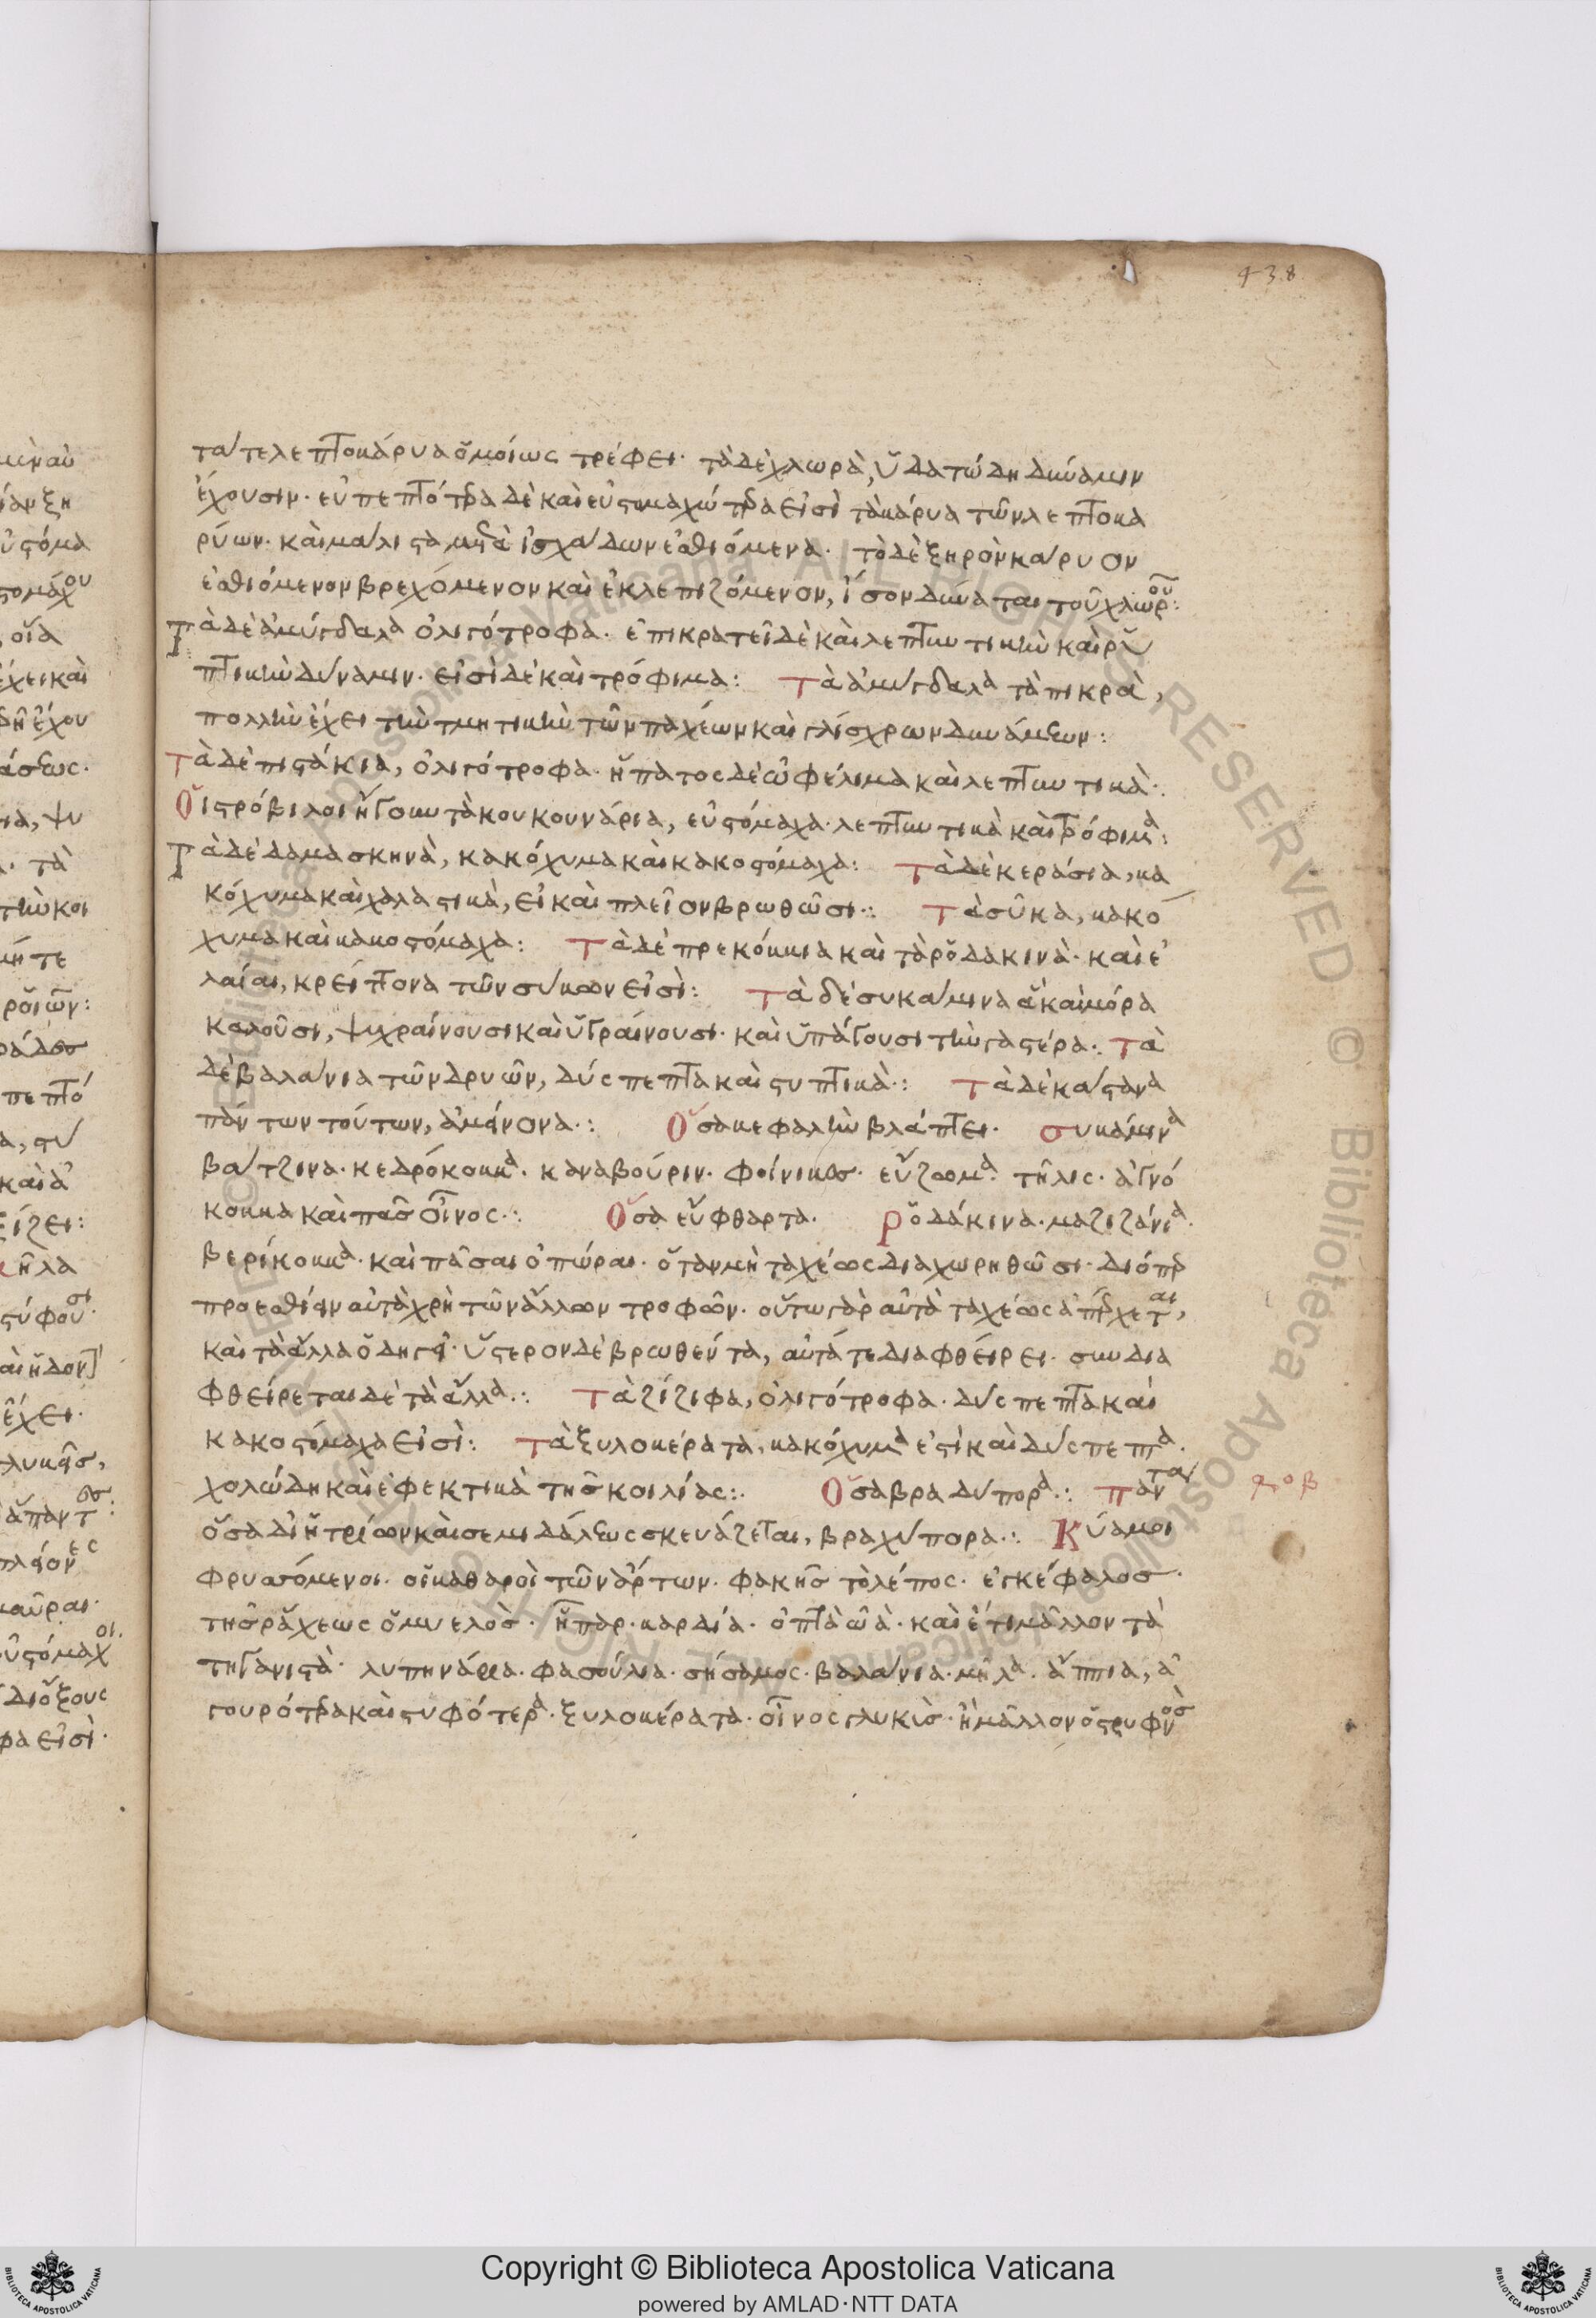 438
τά τε λεπτοκάρυα ὁμοίως τρέφει· τὰ δὲ χλωρὰ, ὑδατώδη δύναμιν
ἔχουσιν· εὐπεπτότερα δὲ καὶ εὐστομαχώτερα εἰσὶ τὰ κάρυα τῶν λεπτοκα
ρύων· καὶ μάλιστα μετὰ ἰσχάδων ἐσθιόμενα· τὸ δὲ ξηρὸν κάρυον
ἐσθιόμενον βρεχόμενον καὶ ἐκλεπιζόμενον, ἴσον δύναται τοῦ χλωροῦ:
Τὰ δὲ ἀμύγδαλα ὀλιγότροφα· ἐπικρατεῖ δὲ καὶ λεπτυντικὴν καὶ ῥυ
πτικὴν δύναμιν· εἰσὶ δὲ καὶ τρόφιμα: Τὰ ἀμύγδαλα τὰ πικρὰ,
πολλὴν ἔχει τὴν τμητικὴν τῶν παχέων καὶ γλίσχρων δυνάμεων:
Τὰ δὲ πιστάκια, ὀλιγότροφα· ἥπατος δὲ ὠφέλιμα καὶ λεπτυντικὰ:
Οἱ στρόβιλοι ἤγουν τὰ κουκουνάρια, εὐστόμαχα· λεπτυντικὰ καὶ τρόφιμα:
Τὰ δὲ δαμασκηνὰ, κακόχυμα καὶ κακοστόμαχα: Τὰ δὲ κεράσια, κα
κόχυμα καὶ χαλαστικὰ, εἰ καὶ πλεῖον βρωθῶσι: Τὰ σῦκα, κακό
χυμα καὶ κακοστόμαχα: Τὰ δὲ πρεκόκκια καὶ τὰ ῥοδακινὰ· καὶ ἐ
λαίαι, κρείττονα τῶν σύκων εἰσὶ: Τὰ δὲ συκάμινα ἃ καὶ μόρα
καλοῦσι, ψυχραίνουσι καὶ ὑγραίνουσι· καὶ ὑπάγουσι τὴν γαστέρα: Τὰ
δὲ βαλάνια τῶν δρυῶν, δύσπεπτα καὶ στυπτικὰ: Τὰ δὲ κάστανα
πάντων τούτων, ἀμείνονα: Ὅσα κεφαλὴν βλάπτει· συκάμινα
βάτζινα· κεδρόκοκκα· καναβούριν· φοίνικες· εὔζωμα· τῆλις· ἀγνό
κοκκα καὶ πᾶς οἶνος: Ὅσα εὔφθαρτα· Ῥοδάκινα· μαζιζάνια·
βερίκοκκα· καὶ πᾶσαι ὀπώραι· ὅταν μὴ ταχέως διαχωρηθῶσι· διόπερ
προεσθίειν αὐτὰ χρὴ τῶν ἄλλων τροφῶν· οὕτω γὰρ αὐτὰ ταχέως ἀπέρχεται,
καὶ τὰ ἄλλα ὁδηγεῖ· ὕστερον δὲ βρωθέντα, αὐτά τε διαφθείρει· συνδια
φθείρεται δὲ τὰ ἄλλα: Τὰ ζίζιφα, ὀλιγότροφα· δύσπεπτα καὶ
κακοστόμαχα εἰσὶ: Τὰ ξυλοκέρατα, κακόχυμα ἐστὶ καὶ δύσπεπτα·
χολώδη καὶ ἐφεκτικὰ τῆς κοιλίας: Ὅσα βραδύπορα: πάντα
ὅσα δι' ἠτρίων καὶ σεμιδάλεως σκευάζεται, βραχύπορα: Κύαμοι
φρυσόμενοι· οἱ καθαροὶ τῶν ἄρτων· φακῆς τὸ λέπος· ἐγκέφαλος·
τῆς ῥάχεως ὁ μυελὸς· ἧπαρ· καρδία· ὀπτὰ ὠὰ· καὶ ἔτι μᾶλλον τὰ
τηγανιστὰ· λυπηνάρια· φασούλια· σήσαμος· βαλάνια· μῆλα· ἄππια, ἀ
γουρότερα καὶ στυφότερα· ξυλοκέρατα· οἶνος γλυκὺς· ἢ μᾶλλον ὁ στρυφνὸς